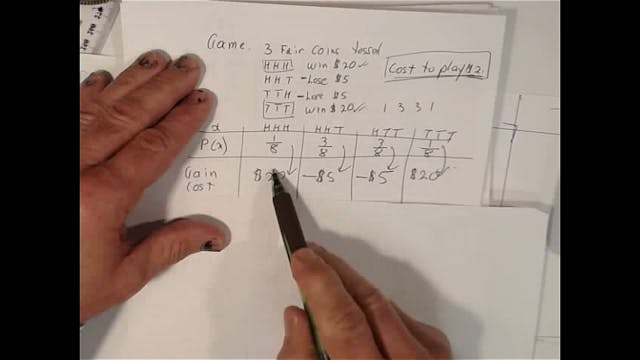 Game. 3 Fair Coins Tossed
HHH Win $20 ✓
HHT - Lose $5
TTH - Lose $5
TTT Win $20 ✓
Cost to play $2.
1 3 3 1
x HHH HHT HTT TTT
P(x) 1/8 3/8 3/8 1/8
Gain $20 -$5 -$5 $20
Cost